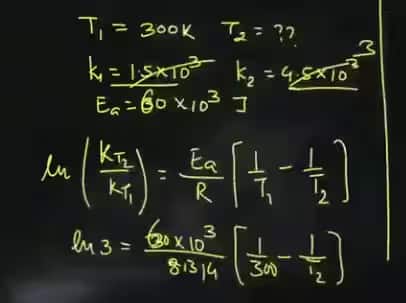 T₁ = 300K T₂ = ??
k₁ = 1.5×10³ k₂ = 4.5×10³ 3
Ea = 60 ×10³ J
ln (kT₂/kT₁) = Ea/R [1/T₁ - 1/T₂]
ln 3 = 60×10³/8.314 [1/300 - 1/T₂]